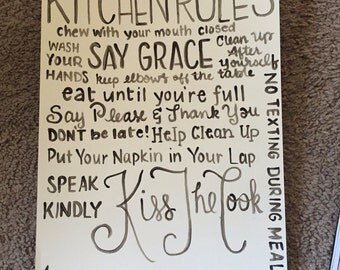 KITCHEN RULES
chew with your mouth closed
WASH YOUR HANDS
SAY GRACE
Clean Up After yourself
keep elbows off the table
eat until you're full
Say Please & Thank You
DON'T be late! Help Clean Up
Put Your Napkin in Your Lap
SPEAK KINDLY
Kiss The Cook
NO TEXTING DURING MEAL